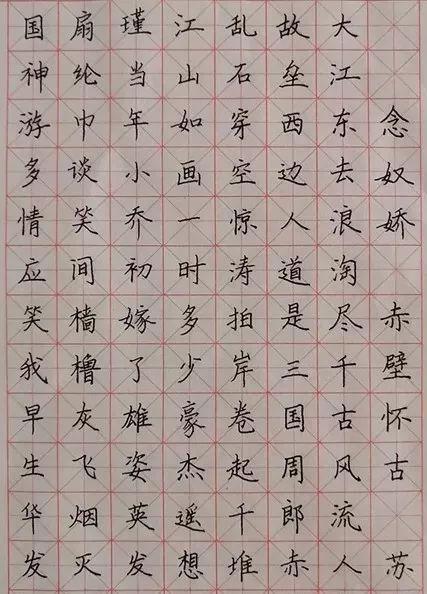 念奴娇 赤壁怀古 苏
大江东去浪淘尽千古风流人
故垒西边人道是三国周郎赤
乱石穿空惊涛拍岸卷起千堆
江山如画一时多少豪杰遥想
瑾当年小乔初嫁了雄姿英发
扇纶巾谈笑间樯橹灰飞烟灭
国神游多情应笑我早生华发